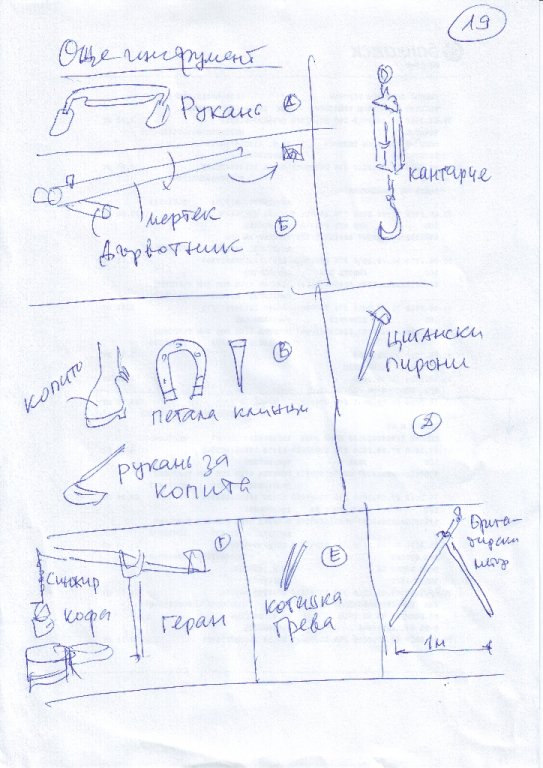 19
Още инструмент
Рукань
А
кантарче
мертек
Дърветник
Б
копито
петала клинци
В
Рукань за
копита
Цигански
пирони
Д
Синжир
кофа
геран
Г
Е
котешка
грева
Брига-
дирски
метър
1м